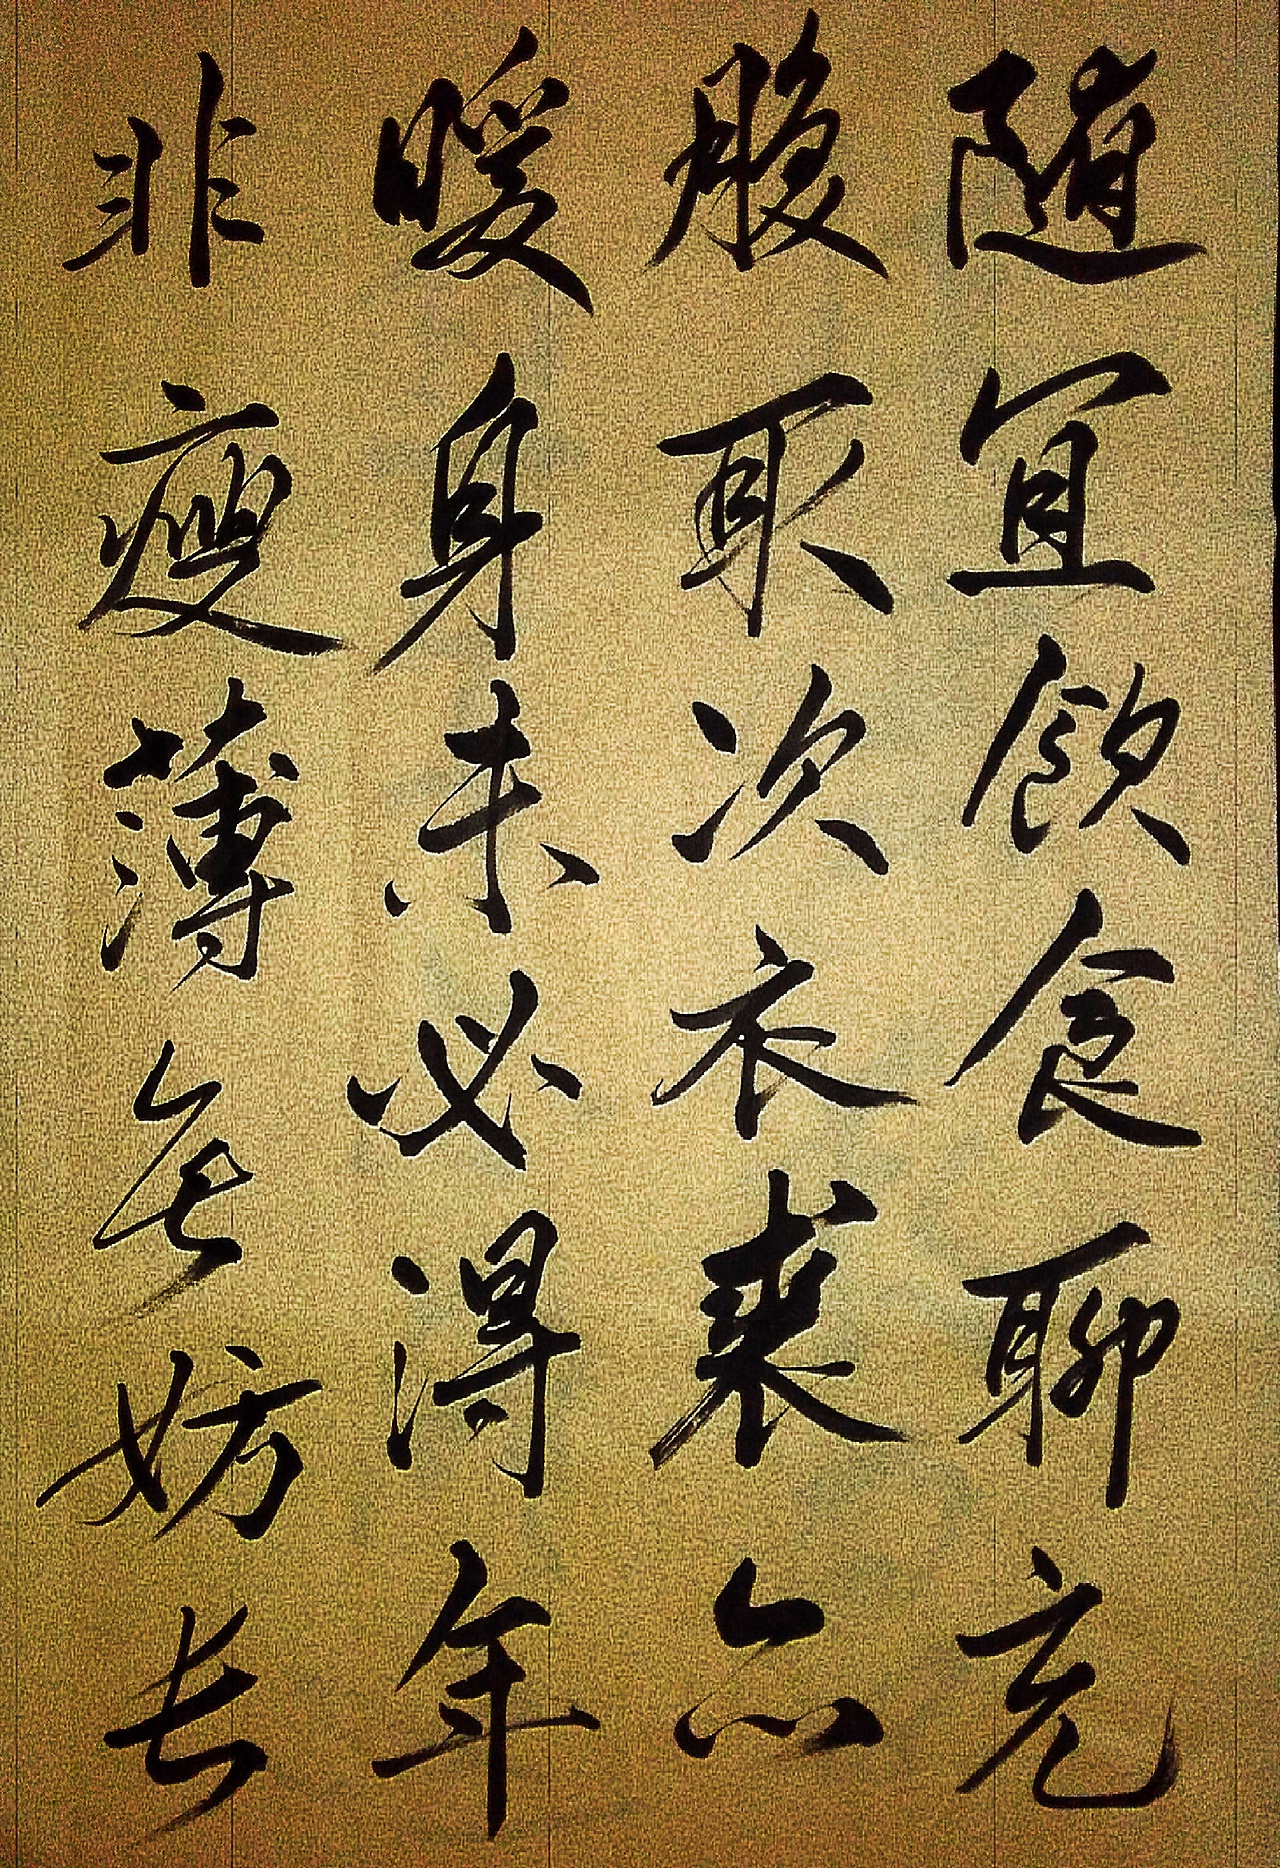 随宜饮食聊充
腹取次衣裘亦
暖身未必得年
非瘦薄无妨长